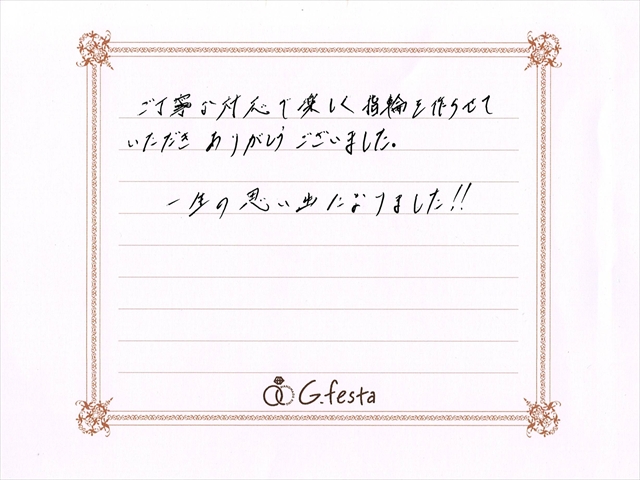 ご丁寧な対応で楽しく指輪を作らせて
いただきありがとうございました。
一生の思い出になりました!!
G.festa